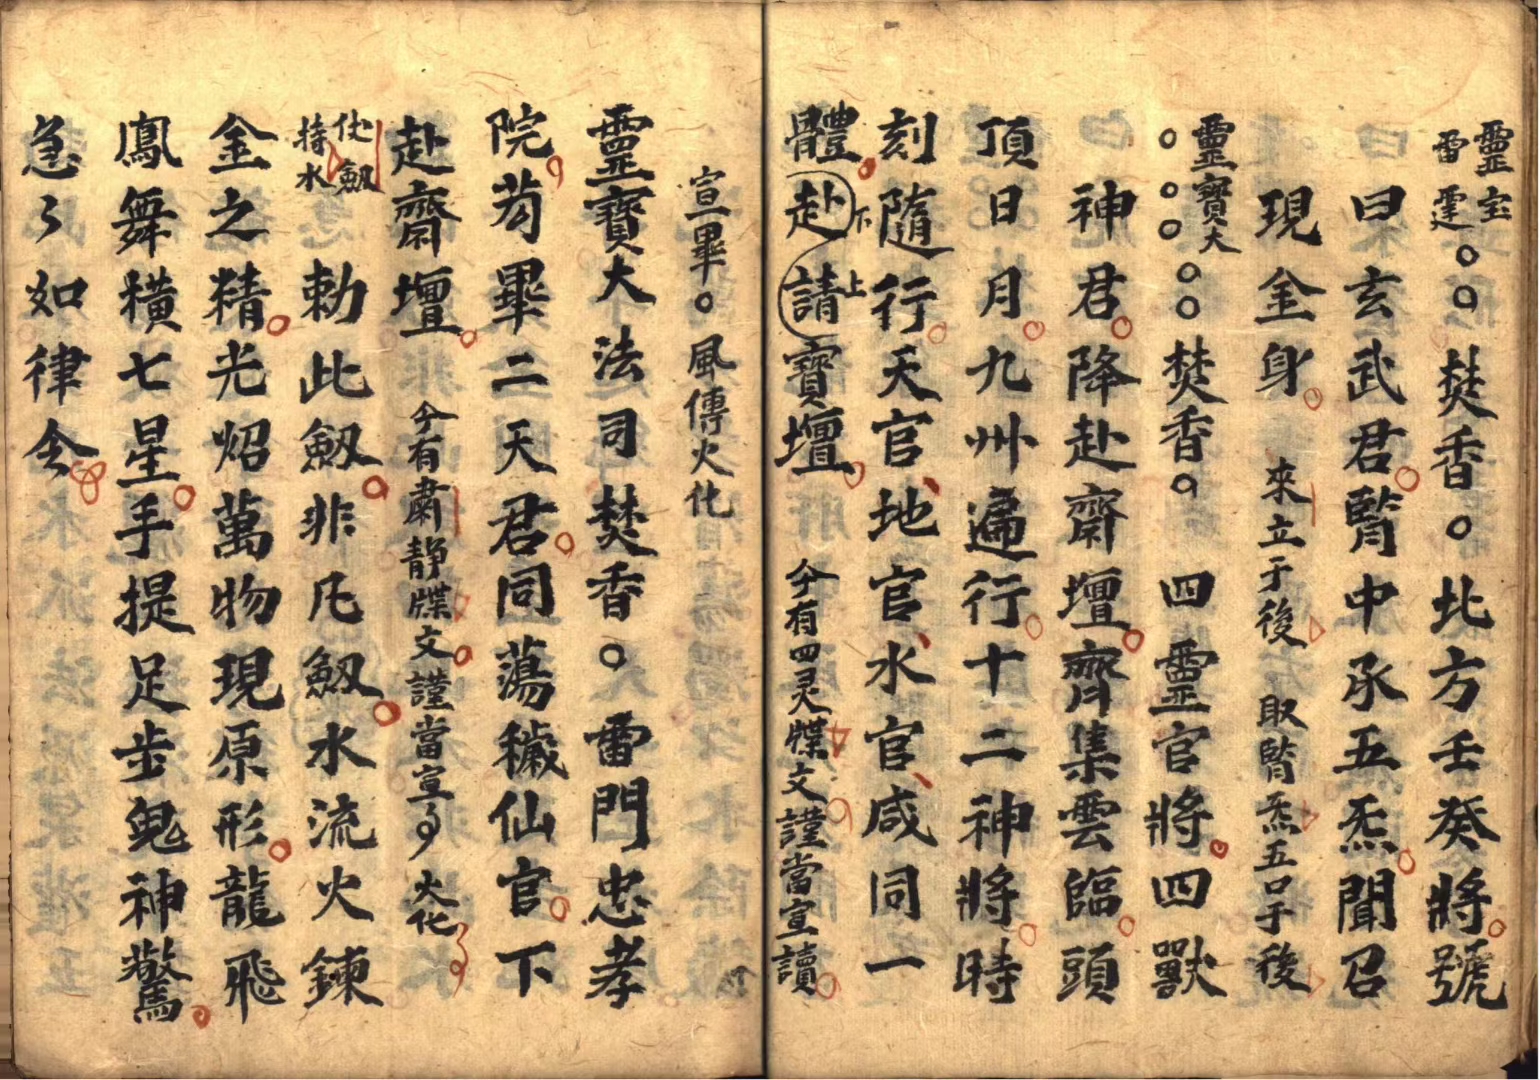 靈宝雷霆○○焚香○北方壬癸將號
曰玄武君腎中承五炁聞召
現金身 來立于後 取腎炁五口于後
靈寶大○○○○○焚香○四靈官將四獸
神君降赴齋壇齊集雲臨頭
頂日月九州遍行十二神將時
刻隨行天官地官水官咸同一
體赴下請上寶壇 今有四灵牒文謹當宣讀
宣畢○風傳火化
靈寶大法司焚香○雷門忠孝
院苟畢二天君同蕩穢仙官下
赴齋壇 今有肅靜牒文謹當宣 火化
仗劔持水 勅此劔非凡劔水流火鍊
金之精光炤萬物現原形龍飛
鳳舞橫七星手提足步鬼神驚
急々如律令